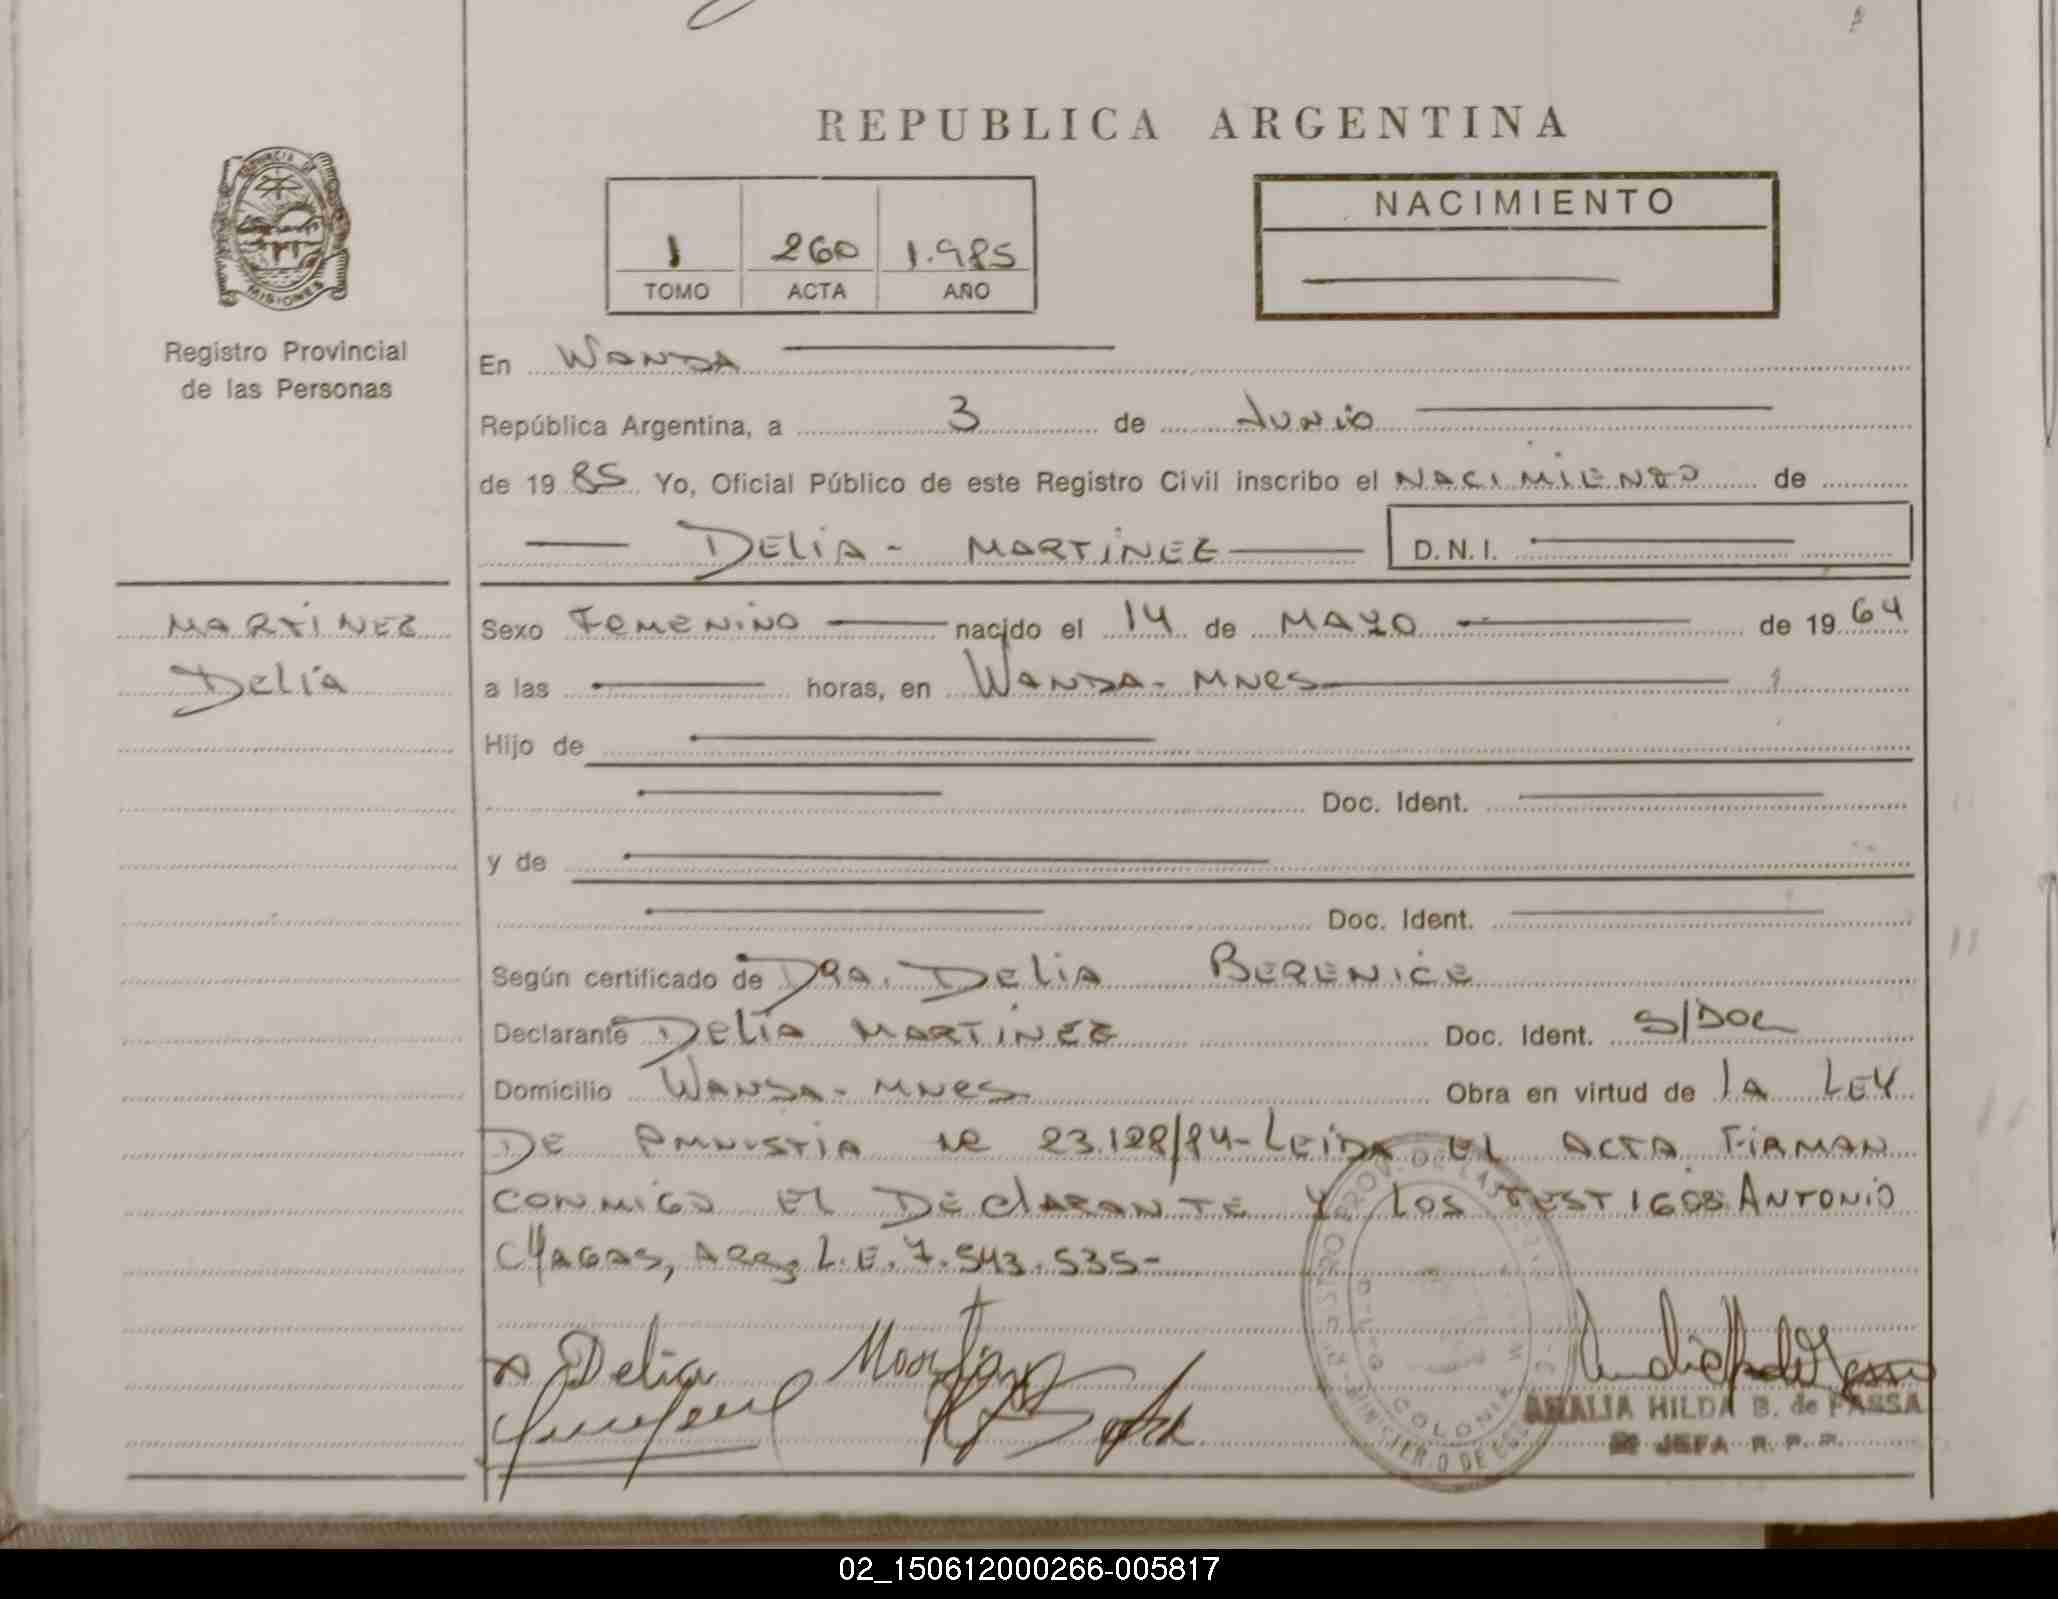 REPUBLICA ARGENTINA
PROVINCIA DE
MISIONES
Registro Provincial
de las Personas
1 260 1.985
TOMO ACTA AÑO
NACIMIENTO
En WANDA
República Argentina, a 3 de Junio
de 1985 Yo, Oficial Público de este Registro Civil inscribo el NACIMIENTO de
DELIA - MARTINEZ D.N.I.
MARTINEZ
Delia
Sexo Femenino nacido el 14 de MAYO de 1964
a las horas, en WANDA - MNES
Hijo de
Doc. Ident.
y de
Doc. Ident.
Según certificado de Dra. Delia BERENICE
Declarante Delia MARTINEZ Doc. Ident. S/DOC
Domicilio WANDA - MNES Obra en virtud de la LEY
DE AMNISTIA 23.128/84 - LEIDA EL ACTA FIRMAN
CONMIGO EL DECLARANTE Y LOS TESTIGOS ANTONIO
CHAGAS, ARG. L.E. 7.543.535-
Delia Martinez
COLONIA
AMALIA HILDA B. de FASSA
JEFA R. P. P.
02_150612000266-005817